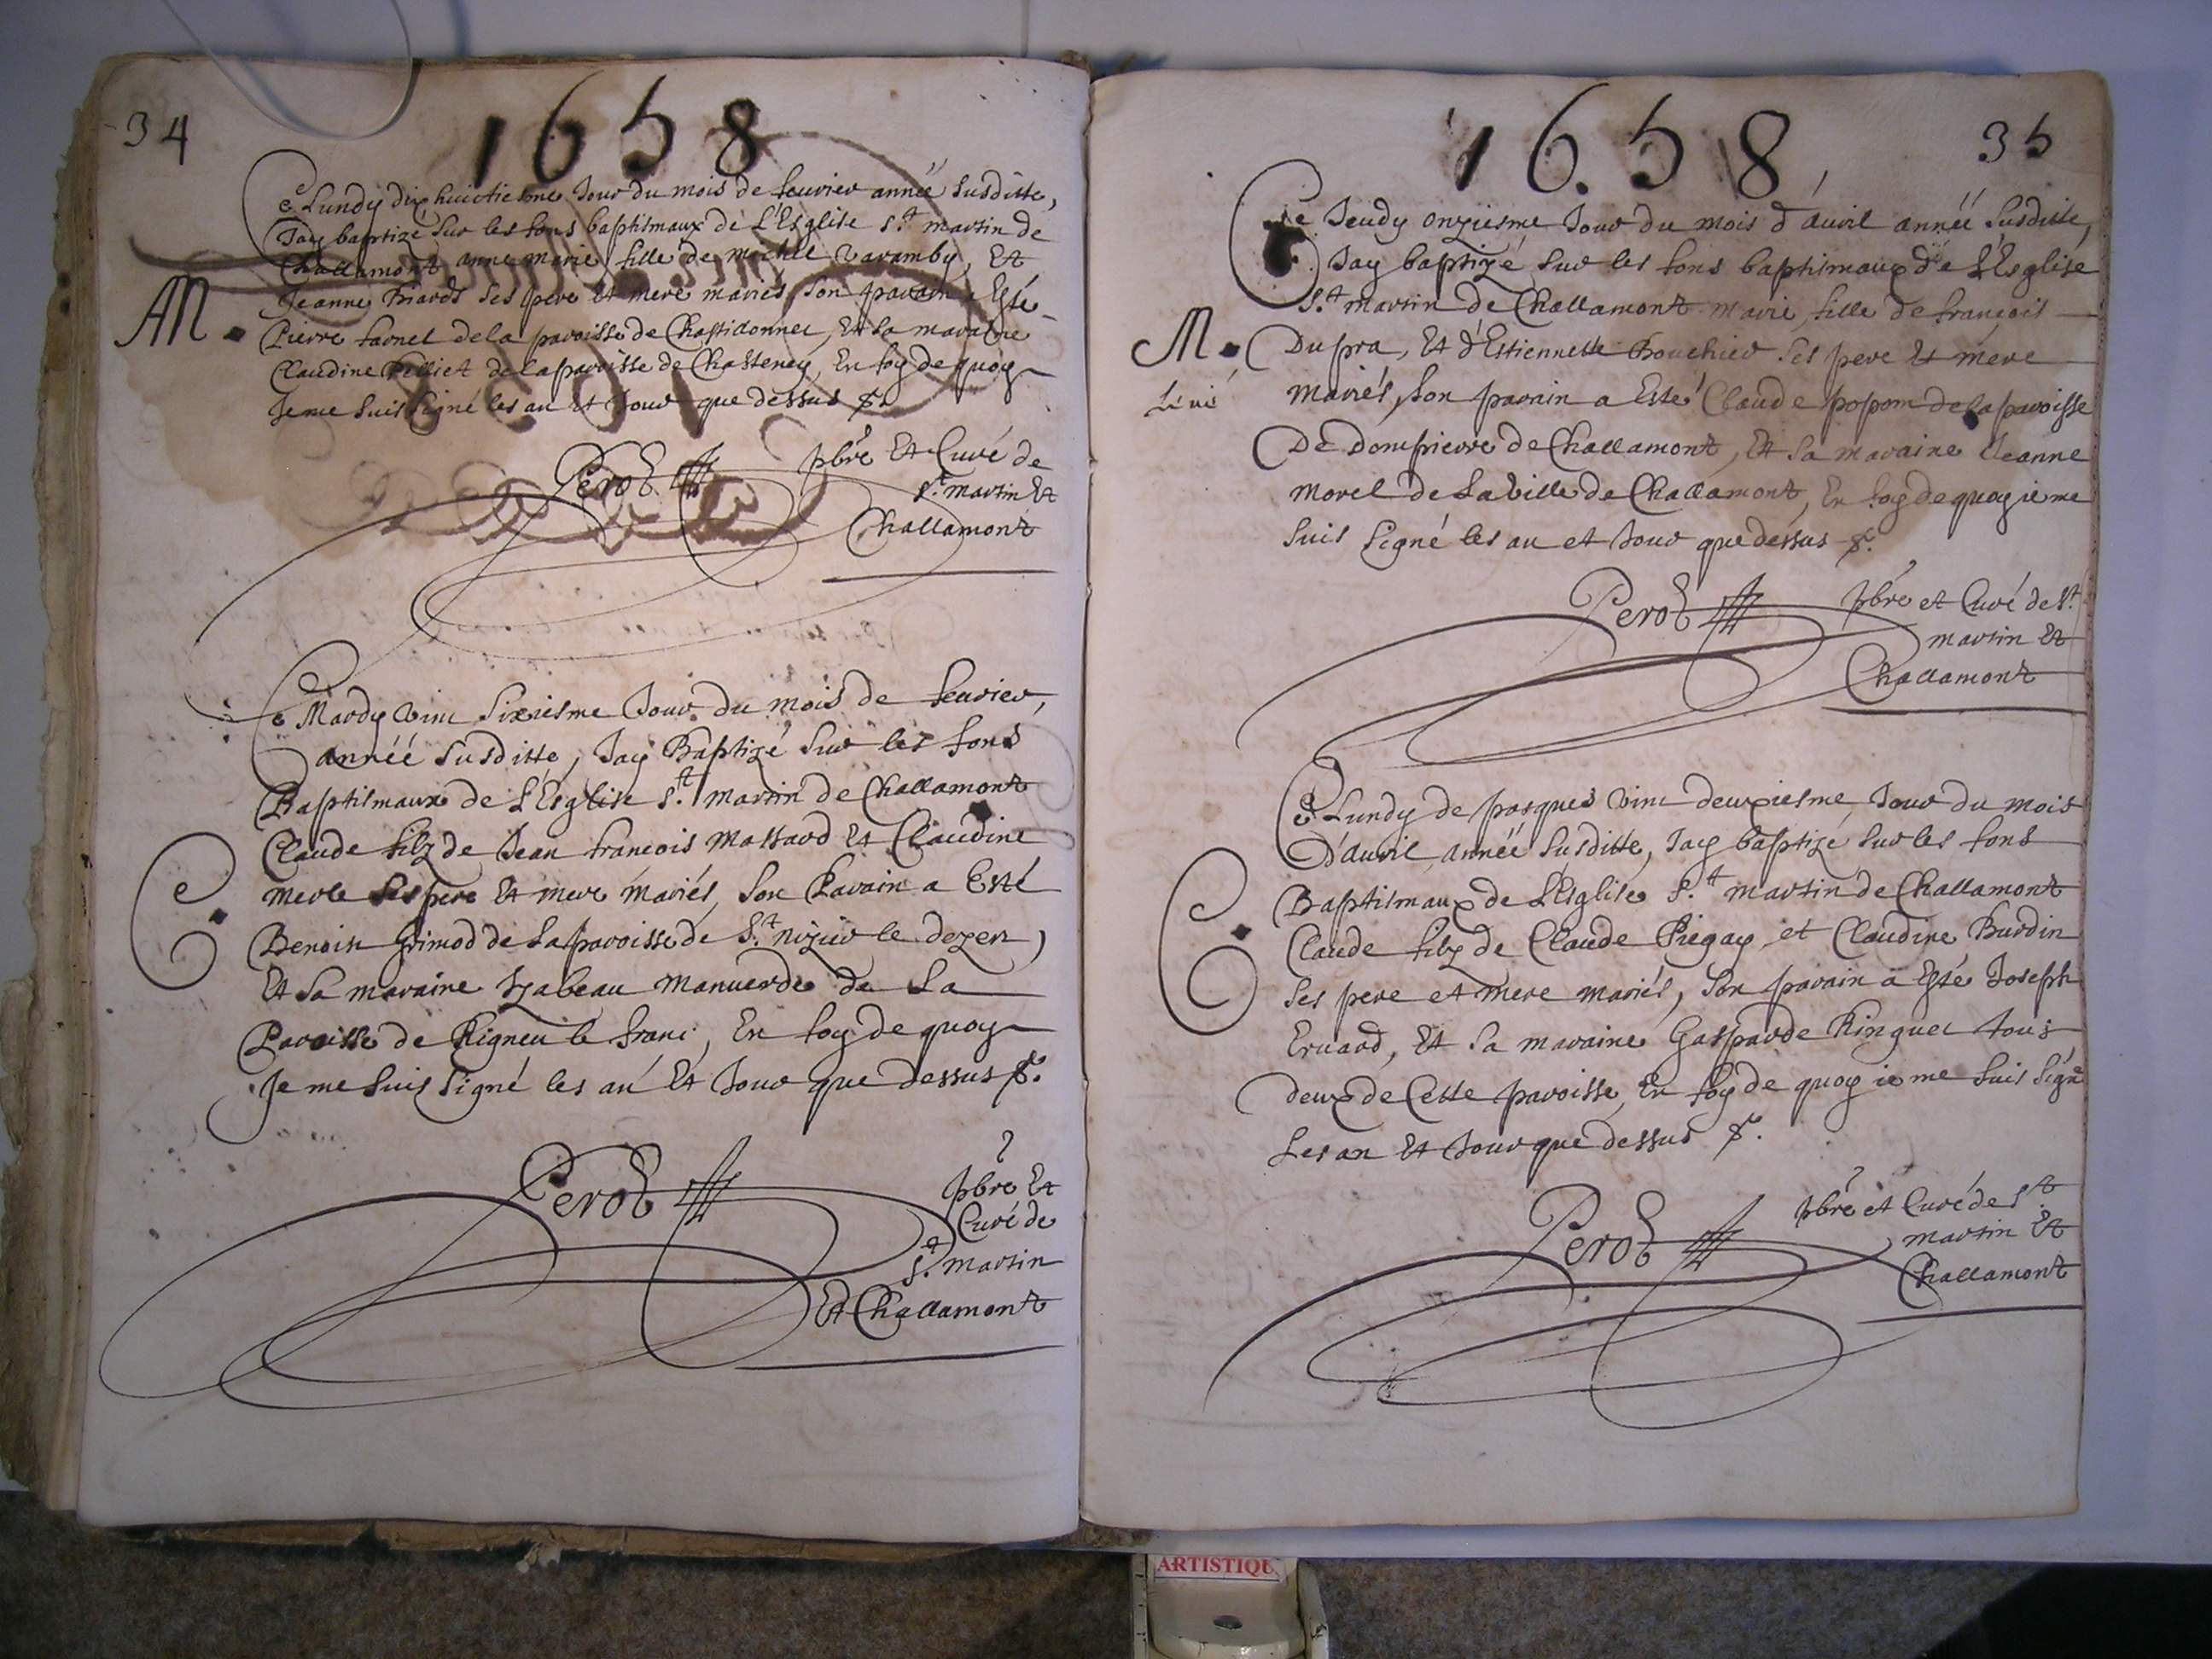 34
1658
Ce Lundy dix huictiesme Jour du mois de feuvrier année susditte,
Jay baptizé sur les fons baptismaux de L'Esglise S.t martin de
Challamont anne marie fille de michel varamby, Et
Jeanne ses pere Et mere mariés, son parain a Esté
Pierre farnel de la paroisse de Chastidonner, Et sa maraine
Claudine de la paroisse de Chastenay, En foy de quoy
Je me suis signé les an Et Jour que dessus
AM.
Perod
pbre Et Curé de
S.t martin Et
Challamont
Ce Mardy vint sixiesme Jour du mois de feuvrier,
année susditte, Jay Baptizé sur les fons
Baptismaux de L'Esglise S.t martin de Challamont
Claude filz de Jean francois Massard Et Claudine
merle ses pere Et mere mariés, son Parain a Esté
Benoist Grimod de la paroisse de S.t nizier le dezer,
Et sa maraine yzabeau manuerde de La
Paroisse de Rigneu le franc, En foy de quoy
Je me suis signé les an Et Jour que dessus
C.
Perod
pbre Et
Curé de
S.t martin
Et Challamont
1658
35
Ce Jeudy onziesme Jour du mois d'auril année susditte,
Jay baptizé sur les fons baptismaux de L'Esglise
S.t martin de Challamont marie, fille de francois
Dupra, Et d'Estiennette Bouchier ses pere Et mere
mariés, son parain a Esté Claude popon de la paroisse
De dompierre de Challamont, Et sa maraine Jeanne
morel de La ville de Challamont, En foy de quoy ie me
suis signé les an et Jour que dessus
M.
Perod
pbre et Curé de S.t
martin Et
Challamont
Ce Lundy de pasques vint deuxiesme Jour du mois
D'auril, année susditte, Jay baptizé sur les fons
Baptismaux de L'Esglise S.t martin de Challamont
Claude filz de Claude Piegay et Claudine Burdin
ses pere et mere mariés, son parain a Esté Joseph
Eruard, Et sa maraine Gasparde Ringuet tous
deux de Cette paroisse, En foy de quoy ie me suis signé
Les an Et Jour que dessus
C.
Perod
pbre et Curé de S.t
martin Et
Challamont
ARTISTIQU